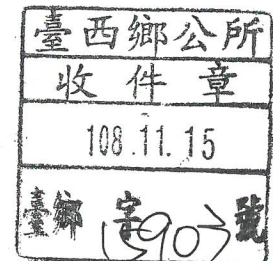 臺西鄉公所
收件章
108.11.15
臺鄉字15903號